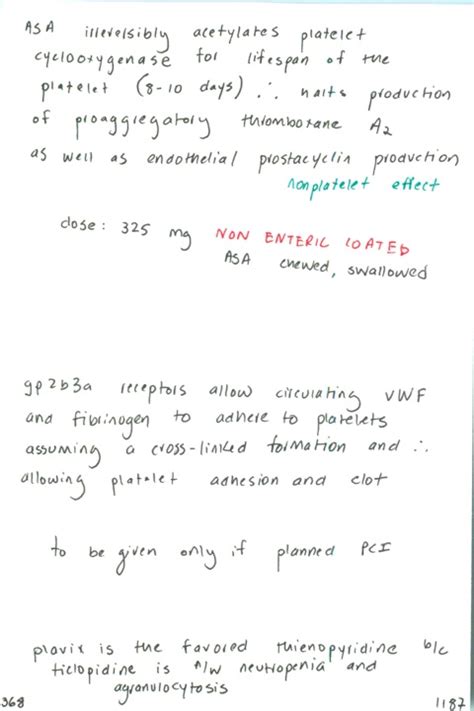 ASA irreversibly acetylates platelet
cyclooxygenase for lifespan of the
platelet (8-10 days) ∴ halts production
of proaggregatory thromboxane A2
as well as endothelial prostacyclin production
nonplatelet effect
dose: 325 mg NON ENTERIC COATED
ASA chewed, swallowed
gp2b3a receptors allow circulating VWF
and fibrinogen to adhere to platelets
assuming a cross-linked formation and ∴
allowing platelet adhesion and clot
to be given only if planned PCI
plavix is the favored thienopyridine b/c
ticlopidine is A/W neutropenia and
agranulocytosis
368
1187